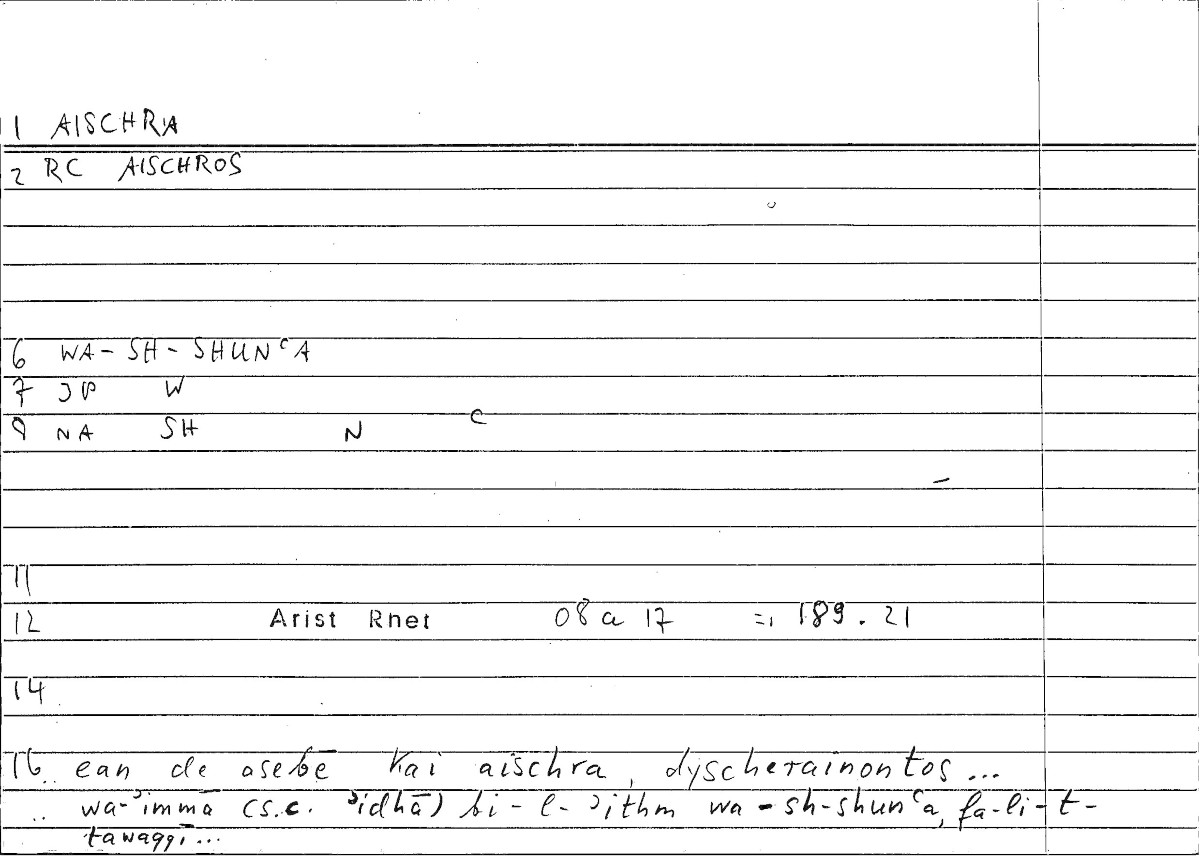 1 AISCHRA
2 RC AISCHROS
6 WA-SH-SHUNᶜA
7 JP W
8 NA SH N ᶜ
11
12 Arist Rhet 08 a 17 = 189.21
14
16 ean de asebē kai aischra, dyscherainontos...
.. wa-ʾimmā (s.c. ʾidhā) bi-l-ʾithm wa-sh-shunᶜa, fa-li-t-
tawaqqī...